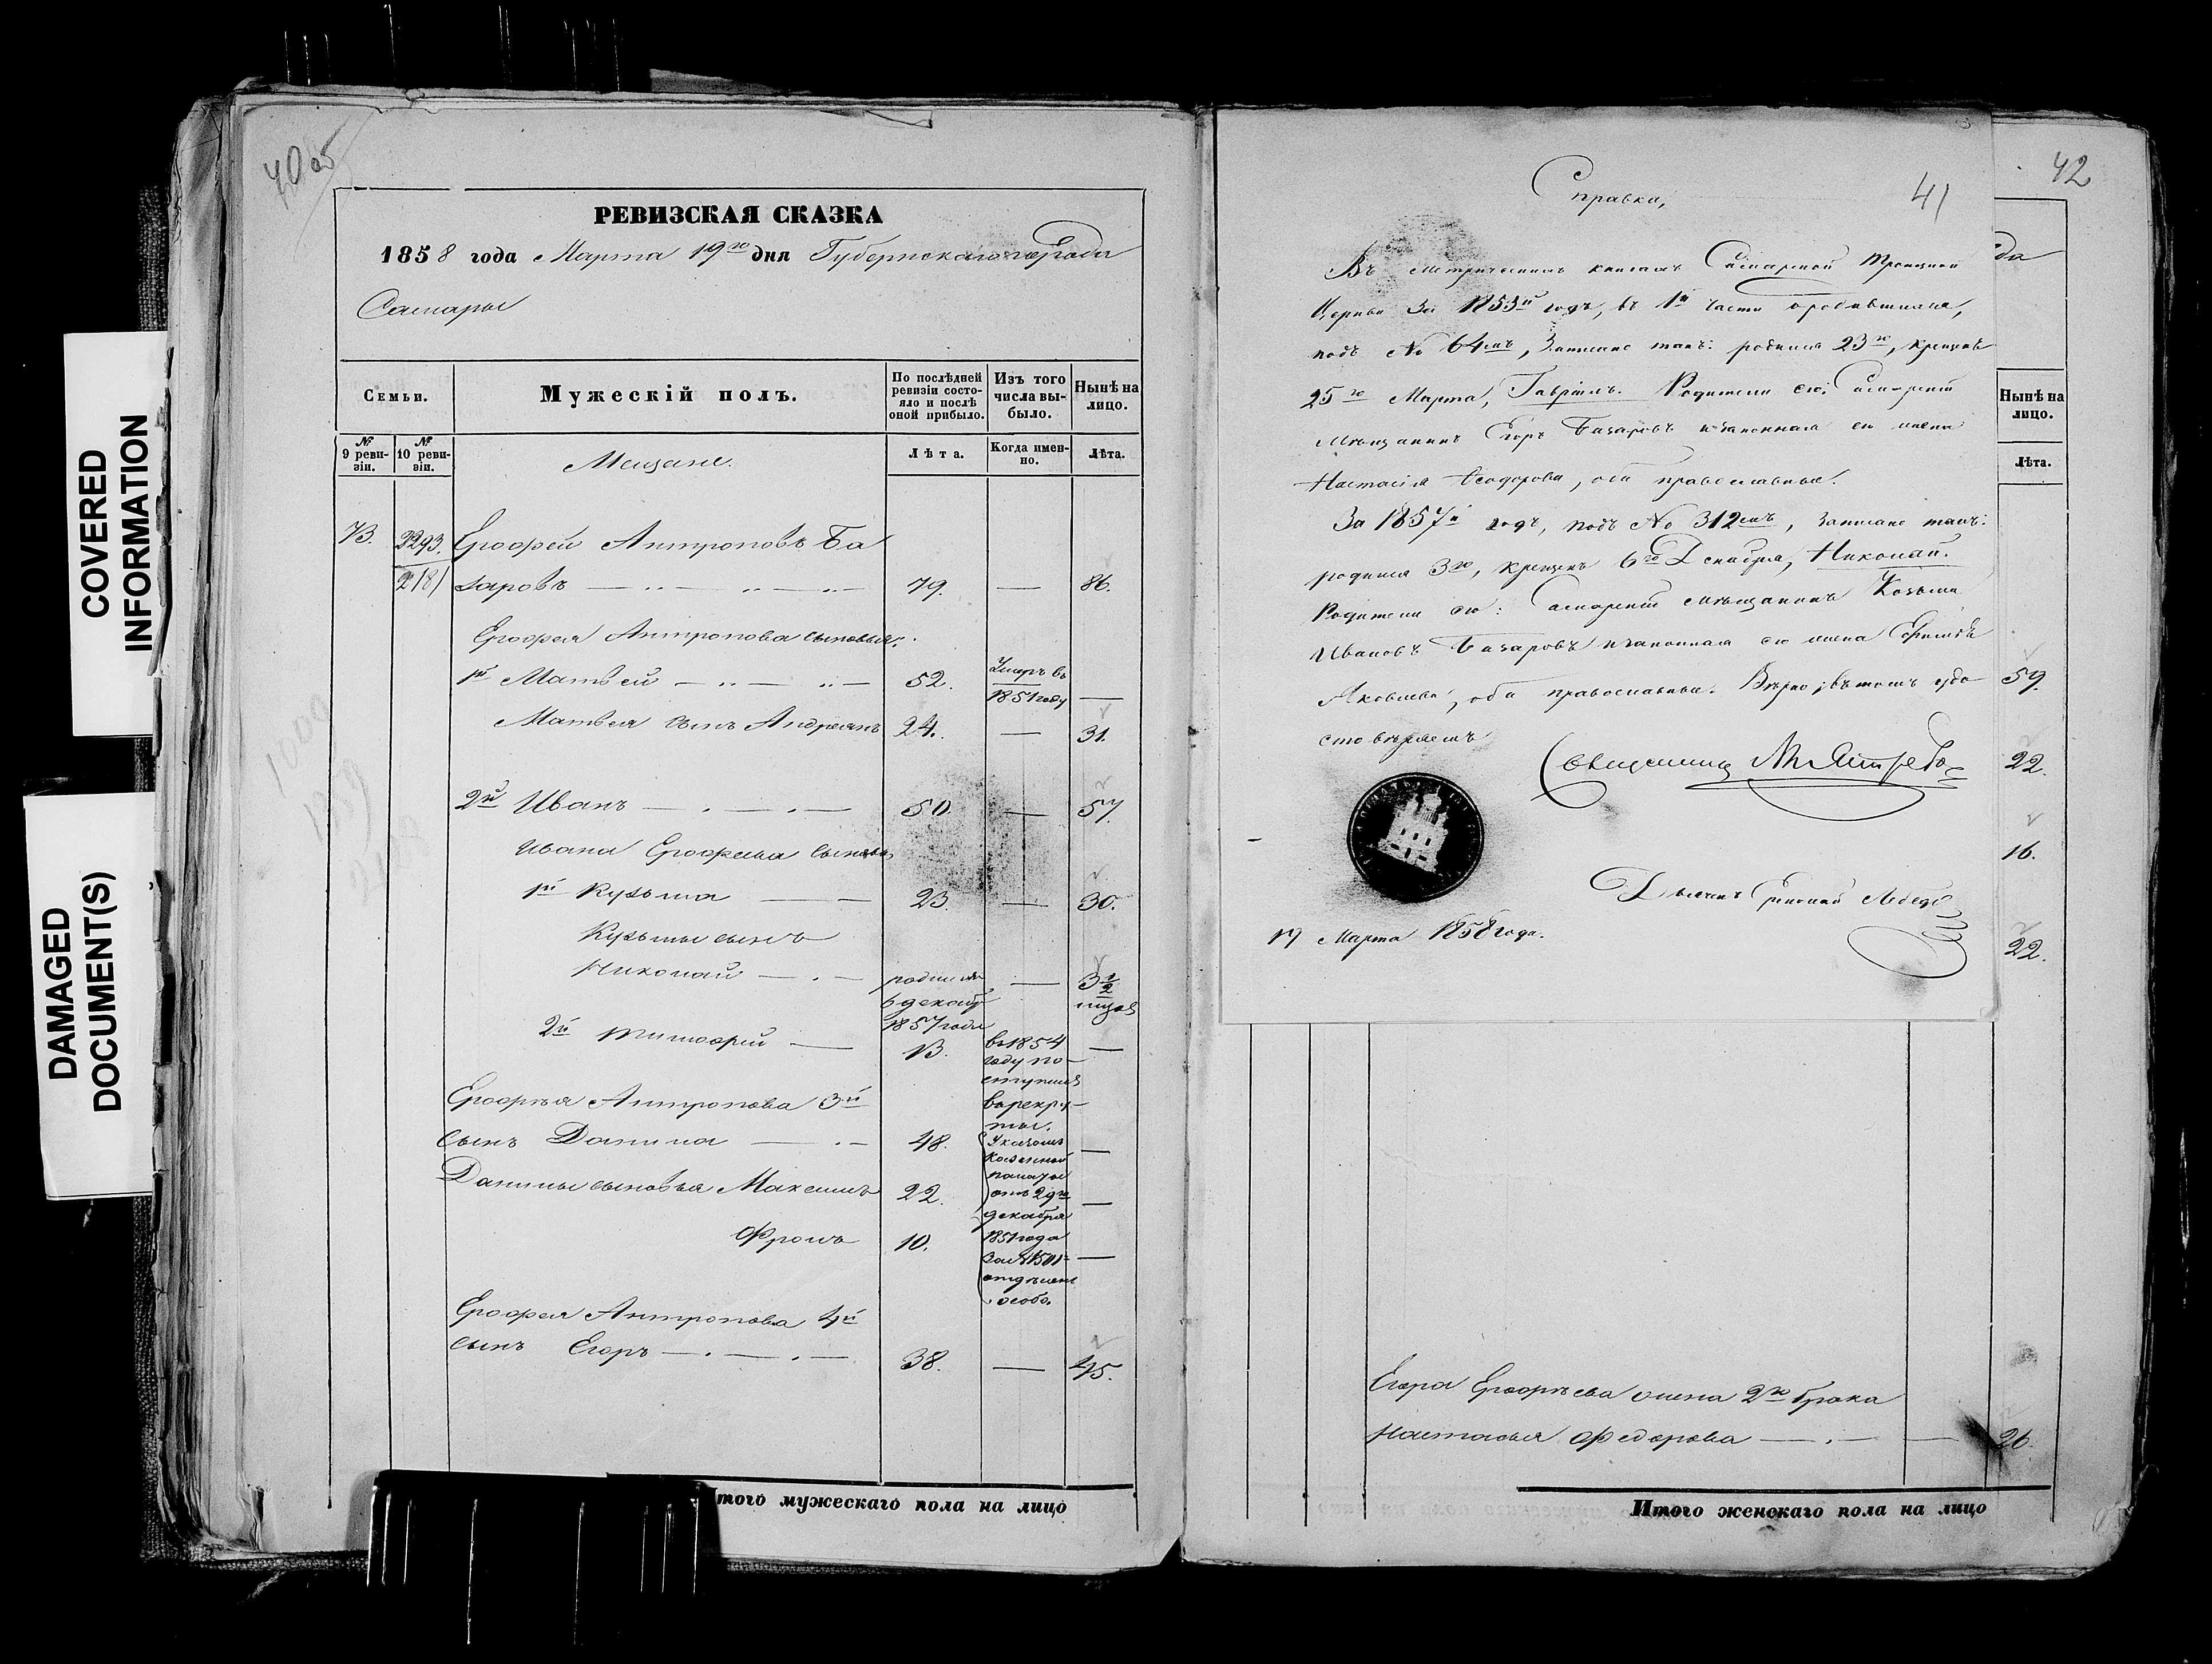 COVERED
INFORMATION
DAMAGED
DOCUMENT(S)
40 об
РЕВИЗСКАЯ СКАЗКА
1858 года Марта 19го дня Губернскаго города
Самары
Семьи.
Мужескій полъ.
По послѣдней ревизіи состояло и послѣ оной прибыло.
Изъ того числа выбыло.
Нынѣ на лицо.
№ 9 ревизіи.
№ 10 ревизіи.
Мещане.
Лѣта.
Когда именно.
Лѣта.
73. 2293. Ерофей Антроповъ Ба
2181 заровъ 79. — 86.
Ерофея Антропова сыновья:
1й Матвей 52. Умеръ въ 1851 году —
Матвея сынъ Андреянъ 24. — 31.
2й Иванъ 50. — 57.
Ивана Ерофеева сыновья
1й Кузьма 23. — 30.
Кузьмы сынъ
Николай родился 6 декаб 1857 года — 3 1/2 мцов
2й Тимофей 13. въ 1854 году поступилъ въ рекруты. —
Ерофѣя Антропова 3й
сынъ Данила 48. —
Данилы сыновья Максимъ 22. —
Фролъ 10. —
Указомъ казенной палаты отъ 29го декабря 1851 года за № отделен особо.
Ерофея Антропова 4й
сынъ Егоръ 38. — 45.
Итого мужескаго пола на лицо
42
да
Нынѣ на лицо.
Лѣта.
59.
22.
16.
22.
41
Справка,
Въ метрическихъ книгахъ Самарской Троицкой
Церкви за 1853й годъ, въ 1й части о родившихся,
подъ № 64мъ, записано такъ: родился 23го, крещенъ
25го Марта, Гавріилъ. Родители его: Самарскій
мѣщанинъ Егоръ Базаровъ и законная его жена
Настасія Феодорова, оба православные.
За 1857й годъ, подъ № 312мъ, записано такъ:
родился 3го, крещенъ 6го Декабря, Николай.
Родители его: Самарскій мѣщанинъ Козьма
Ивановъ Базаровъ и законная его жена
Яковлева, оба православные. Вѣрно, въ томъ удо
стовѣряемъ
Священникъ
19 Марта 1858 года.
Егора Ерофѣева жена 2го брака
Настасья Федорова 26.
Итого женскаго пола на лицо